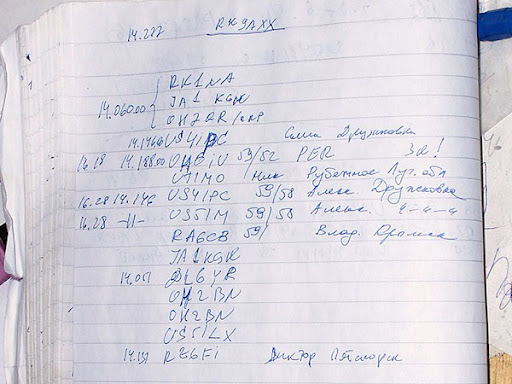 14.277 RK9AXX
RK1NA
14.060.00 JA1KGW
OH2QR/QRP
14.146 US4IPC Саша Дружковка
16.18 14.188.00 59/52 PER
UT1MO Ник Рубежное Луг. обл
16.28 14.146 US4IPC 59/58 Алекс. Дружковка
16.28 -//- US5IM 59/58 Алекс.
RA6CB 59/ Влад.
JA1KGW
14.051 DL6YR
OH2BN
OH2BN
US5ILX
14.151 RZ6FI Виктор Пятигорск